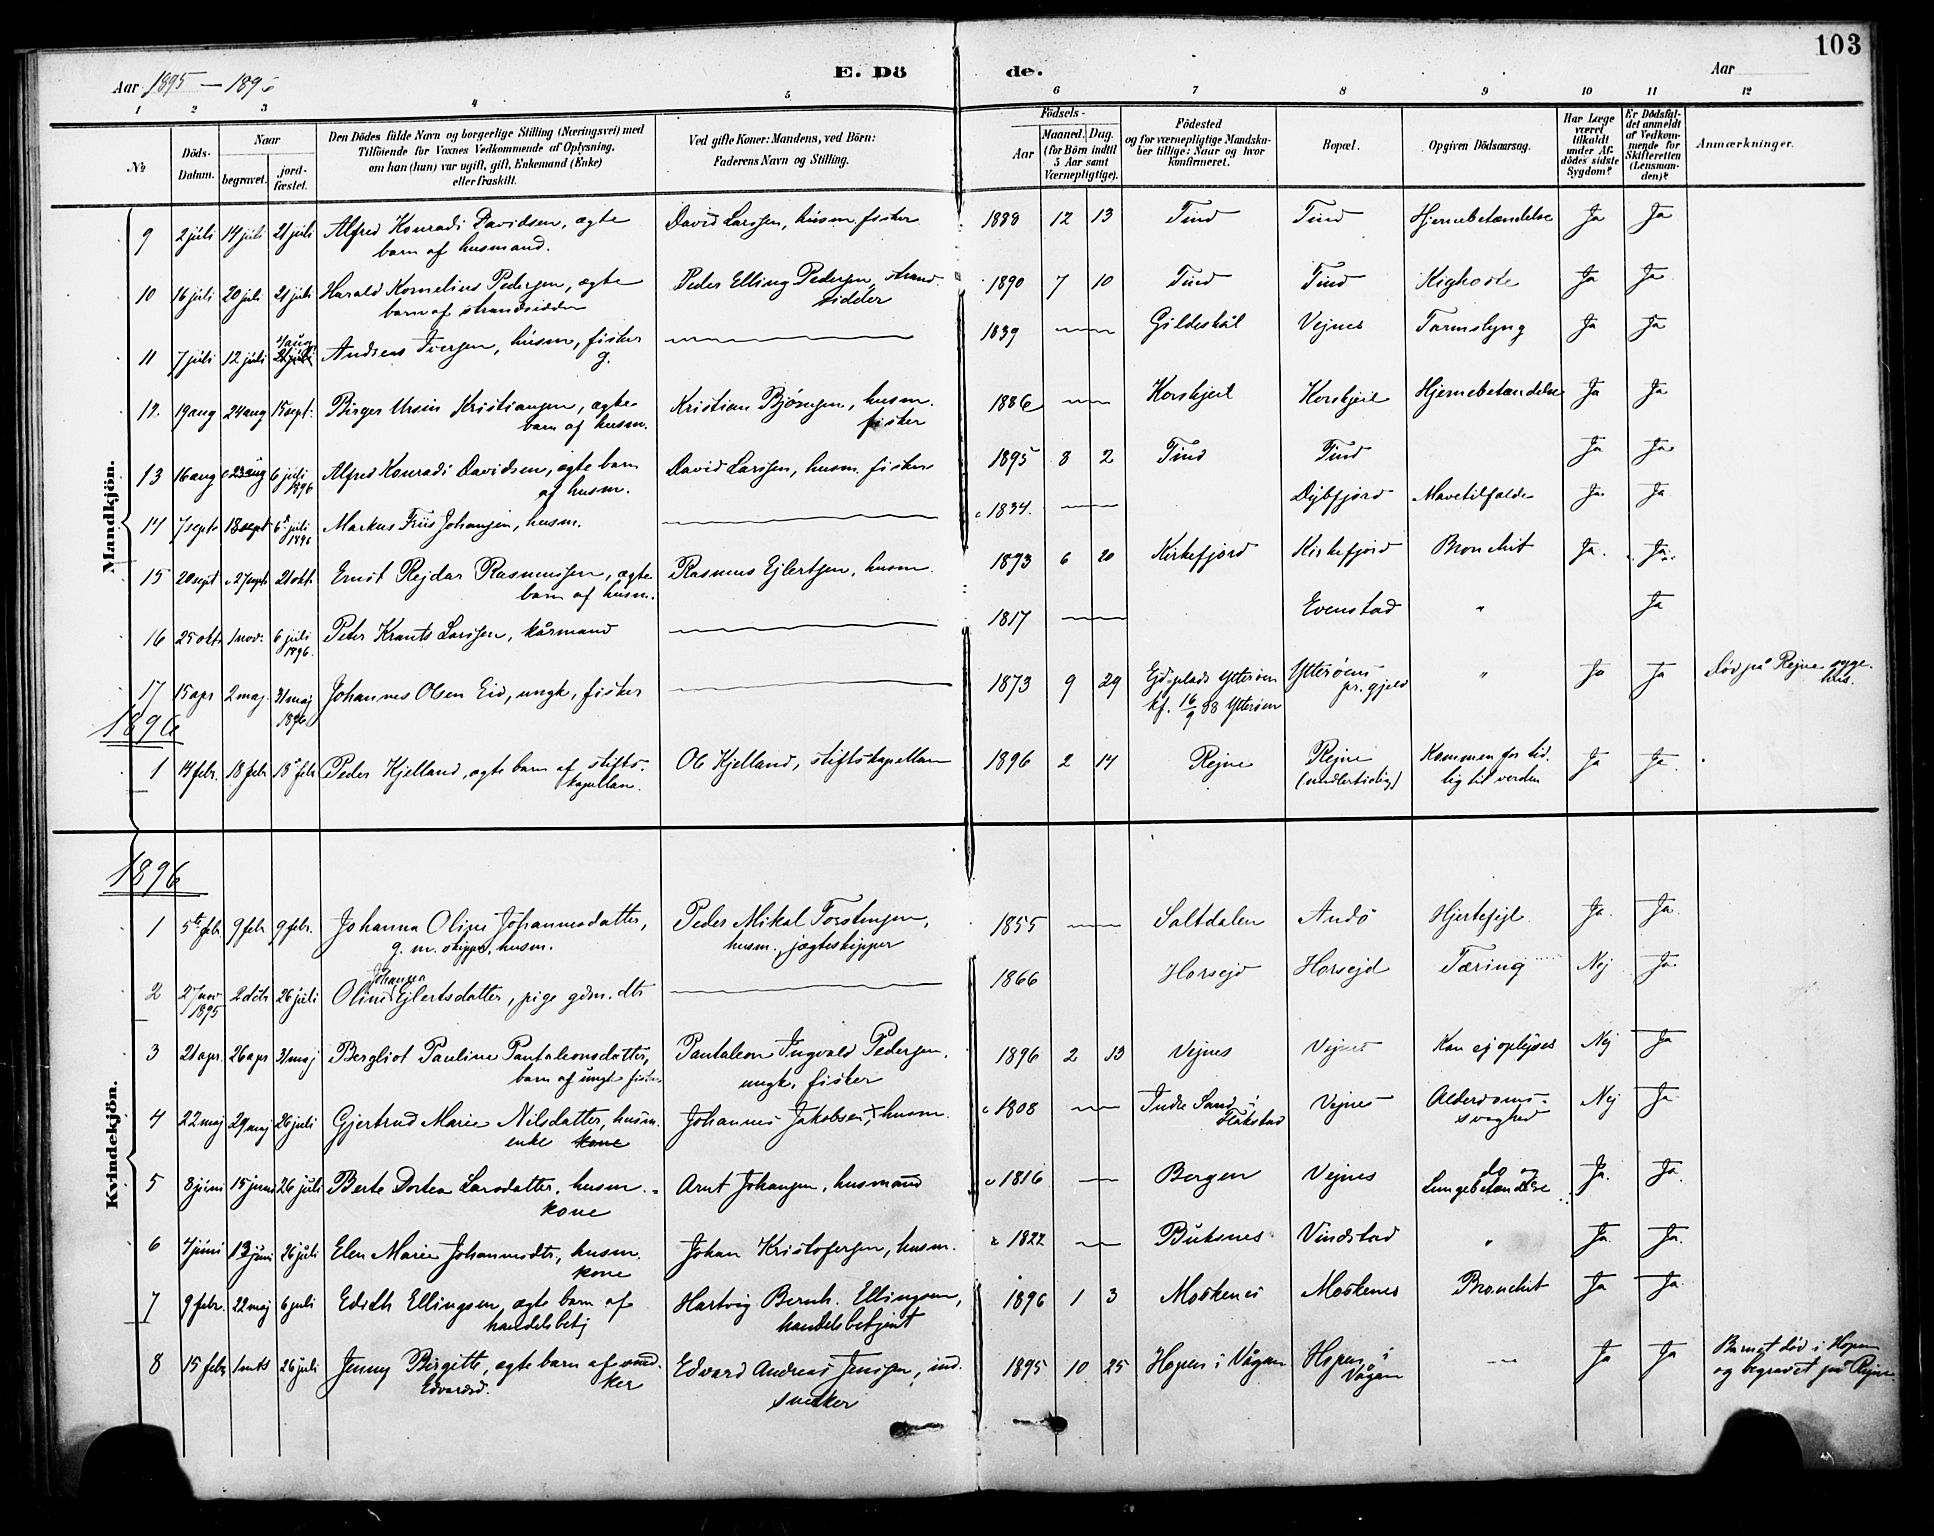 103
Aar 1895 — 1896
E. Dö de.
Aar
1 2 3 4 5 6 7 8 9 10 11 12
No
Döds-Datum.
Naar
begravet.
jord-fæstet.
Den Dödes fulde Navn og borgerlige Stilling (Næringsvei) med
Tilföiende for Voxnes Vedkommende af Oplysning,
om han (hun) var ugift, gift, Enkemand (Enke)
eller fraskilt.
Ved gifte Koner: Mandens, ved Börn:
Faderens Navn og Stilling.
Födsels-
Aar
Maaned. Dag.
(for Börn indtil
5 Aar samt
Værnepligtige).
Födested
og for værnepligtige Mandska-
ber tillige: Naar og hvor
konfirmeret.
Bopæl.
Opgiven Dödsaarsag.
Har Læge
været
tilkaldt
under Af-
dödes sidste
Sygdom?
Er Dödsfal-
det anmeldt
af Vedkom-
mende for
Skifteretten
(Lensman-
den)?
Anmærkninger.
Mandkjön.
9 2 juli 14 juli 21 juli Alfred Konradi Davidsen, ægte David Larssen, husm. fisker 1888 12 13 Tind Tind Hjernebetændelse Ja Ja
barn af husmand.
10 16 juli 20 juli 21 juli Harald Kornelius Pedersen, ægte Peder Elling Pedersen, strand- 1890 7 10 Tind Tind Kighoste Ja Ja
barn af strandsidder sidder
11 7 juli 12 juli 21 juli Andreas Iversen, husm, fisker 1839 Gildeskål Vejnes Tarmslyng Ja Ja
g.
12. 19 aug 24 aug 15 sept. Birger Ursin Kristiansen, ægte Kristian Bjørnsen, husm. 1886 Korshjeil Korshjeil Hjernebetændelse Ja Ja
barn af husm. fisker
13 16 aug 23 aug 6 juli 1896 Alfred Konradi Davidsen, ægte barn David Larssen, husm. fisker 1895 8 2 Tind Tind Ja Ja
af husm.
14 7 sept 18 sept 6 juli 1896 Markus Friis Johansen, husm. c 1834. Dybfjord Mavetilfælde Ja Ja
15 20 sept 27 sept 21 okt. Ernst Rejdar Rasmussen, ægte Rasmus Ejlertsen, husm. 1893 6 20 Kirkefjord Kirkefjord Bronchit Ja. Ja.
barn af husm.
16 25 okt. 1 nov. 6 juli 1896. Peter Krants Larssen, kårmand 1817 Evenstad " Ja
17 15 apr 2 maj 31 maj 1896 Johannes Olsen Eid, ungk, fisker 1873 9 29 Ejd-plads Ytterøen Ytterøens " Ja Ja Død på Rejne syge-
kf. 16/9 88 Ytterøen pr. gjeld hus.
1896
1 14 febr. 18 febr 18 febr Peder Kjelland, ægte barn af stifts- Ole Kjelland, stiftskapellan 1896 2 14 Rejne Rejne Kommen for tid- Ja Ja
kapellan. (midlertidig) lig til verden
Kvindekjön.
1896
1 5te febr 9 febr 9 febr. Johanna Oline Johannesdatter, Peder Mikal Torstensen, 1855 Saltdalen Andø Hjertefejl Ja. Ja.
g. m. skipper, husm. husm. jægteskipper
Johanna
2 27 nov 1895 2 dcb 26 juli Oline Ejlertsdatter, pige gdm. dtr 1866 Horsejd Horsejd Tæring Nej Ja.
3 21 apr. 26 apr 31 maj Bergliot Pauline Pantaleonsdatter, Pantaleon Ingvald Pedersen. 1896 2 13 Vejnes Vejnes Kan ej oplyses Nej Ja
barn af ungk. fisker ungk, fisker
4 22 maj 29 maj 26 juli Gjertrud Marie Nilsdatter, husm. Johannes Jakobsen, husm. c 1808 Indre Sand i Vejnes Alderdoms- Nej Ja
enke kone Flakstad svaghed
5 8 juni 15 juni 26 juli Berte Dortea Larsdatter, husm. Arnt Johansen, husmand c 1816 Bergen Vejnes do og Ja. Ja.
kone Lungebetændelse
6 4 juni 13 juni 26 juli Elen Marie Johannesdtr, husm. Johan Kristofersen, husm. c 1822 Buksnes Vindstad " Ja. Ja.
kone
7 9 febr. 22 maj 6 juli Edith Ellingsen, ægte barn af Hartvig Bernh. Ellingsen, 1896 1 3 Moskenes Moskenes Bronchit Ja Ja
handelsbetj handelsbetjent
8 15 febr 1 mts 26 juli Jenny Birgitte, ægte barn af sned- Edvard Andreas Jenssen, ind. 1895 10 25 Hopen i Vågan Hopen i Ja Ja Barnet død i Hopen
Edvardsd. ker snedker Vågan og begravet på Rejne.